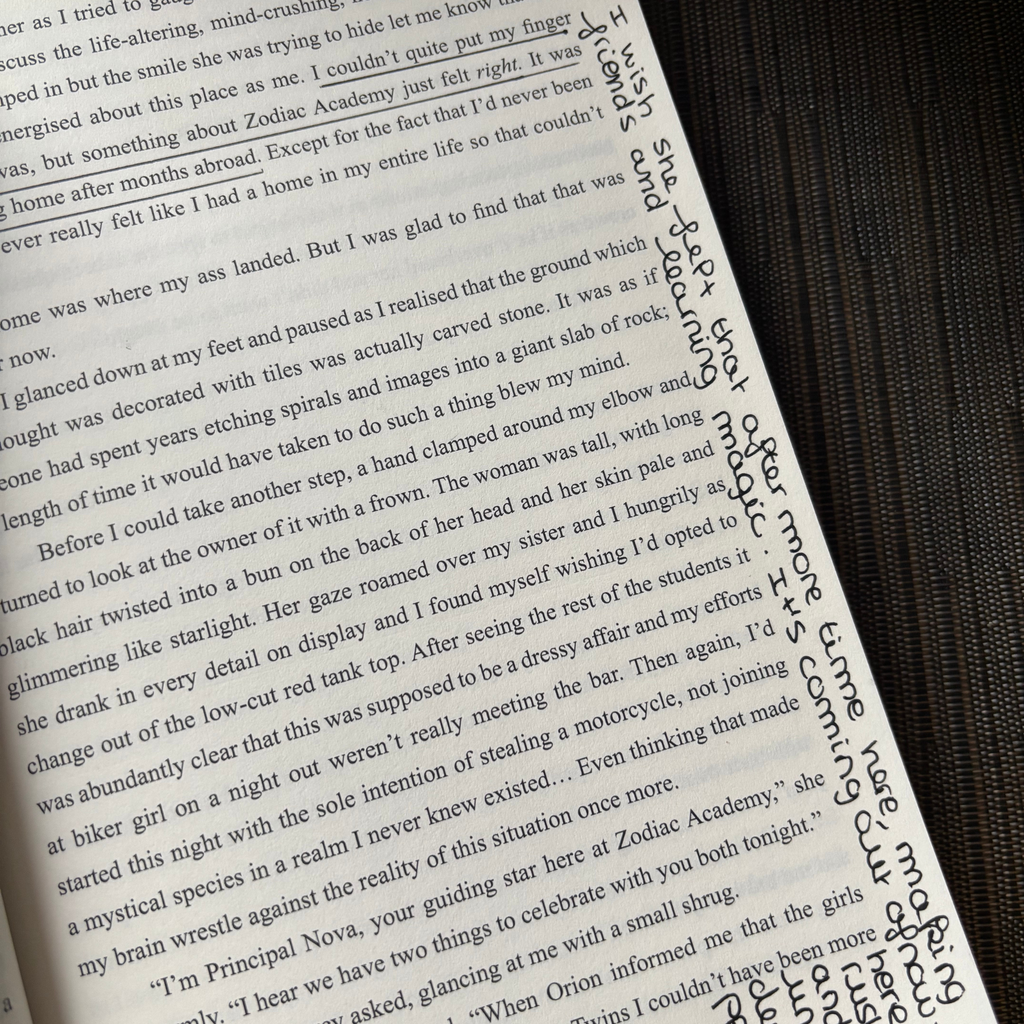 as I tried to
the life-altering, mind-crushing,
in but the smile she was trying to hide let me know
energised about this place as me. I couldn't quite put my finger
was, but something about Zodiac Academy just felt right. It was
home after months abroad. Except for the fact that I'd never been
ever really felt like I had a home in my entire life so that couldn't
ome was where my ass landed. But I was glad to find that that was
now.
I glanced down at my feet and paused as I realised that the ground which
ought was decorated with tiles was actually carved stone. It was as if
eone had spent years etching spirals and images into a giant slab of rock;
length of time it would have taken to do such a thing blew my mind.
Before I could take another step, a hand clamped around my elbow and
turned to look at the owner of it with a frown. The woman was tall, with long
black hair twisted into a bun on the back of her head and her skin pale and
glimmering like starlight. Her gaze roamed over my sister and I hungrily as
she drank in every detail on display and I found myself wishing I'd opted to
change out of the low-cut red tank top. After seeing the rest of the students it
was abundantly clear that this was supposed to be a dressy affair and my efforts
at biker girl on a night out weren't really meeting the bar. Then again, I'd
started this night with the sole intention of stealing a motorcycle, not joining
a mystical species in a realm I never knew existed… Even thinking that made
my brain wrestle against the reality of this situation once more.
"I'm Principal Nova, your guiding star here at Zodiac Academy," she
"I hear we have two things to celebrate with you both tonight."
asked, glancing at me with a small shrug.
"When Orion informed me that the girls
Twins I couldn't have been more
a
I wish she felt that after more time here, making
friends and learning magic. It's comming out ofnow
here
rus
and
un
de